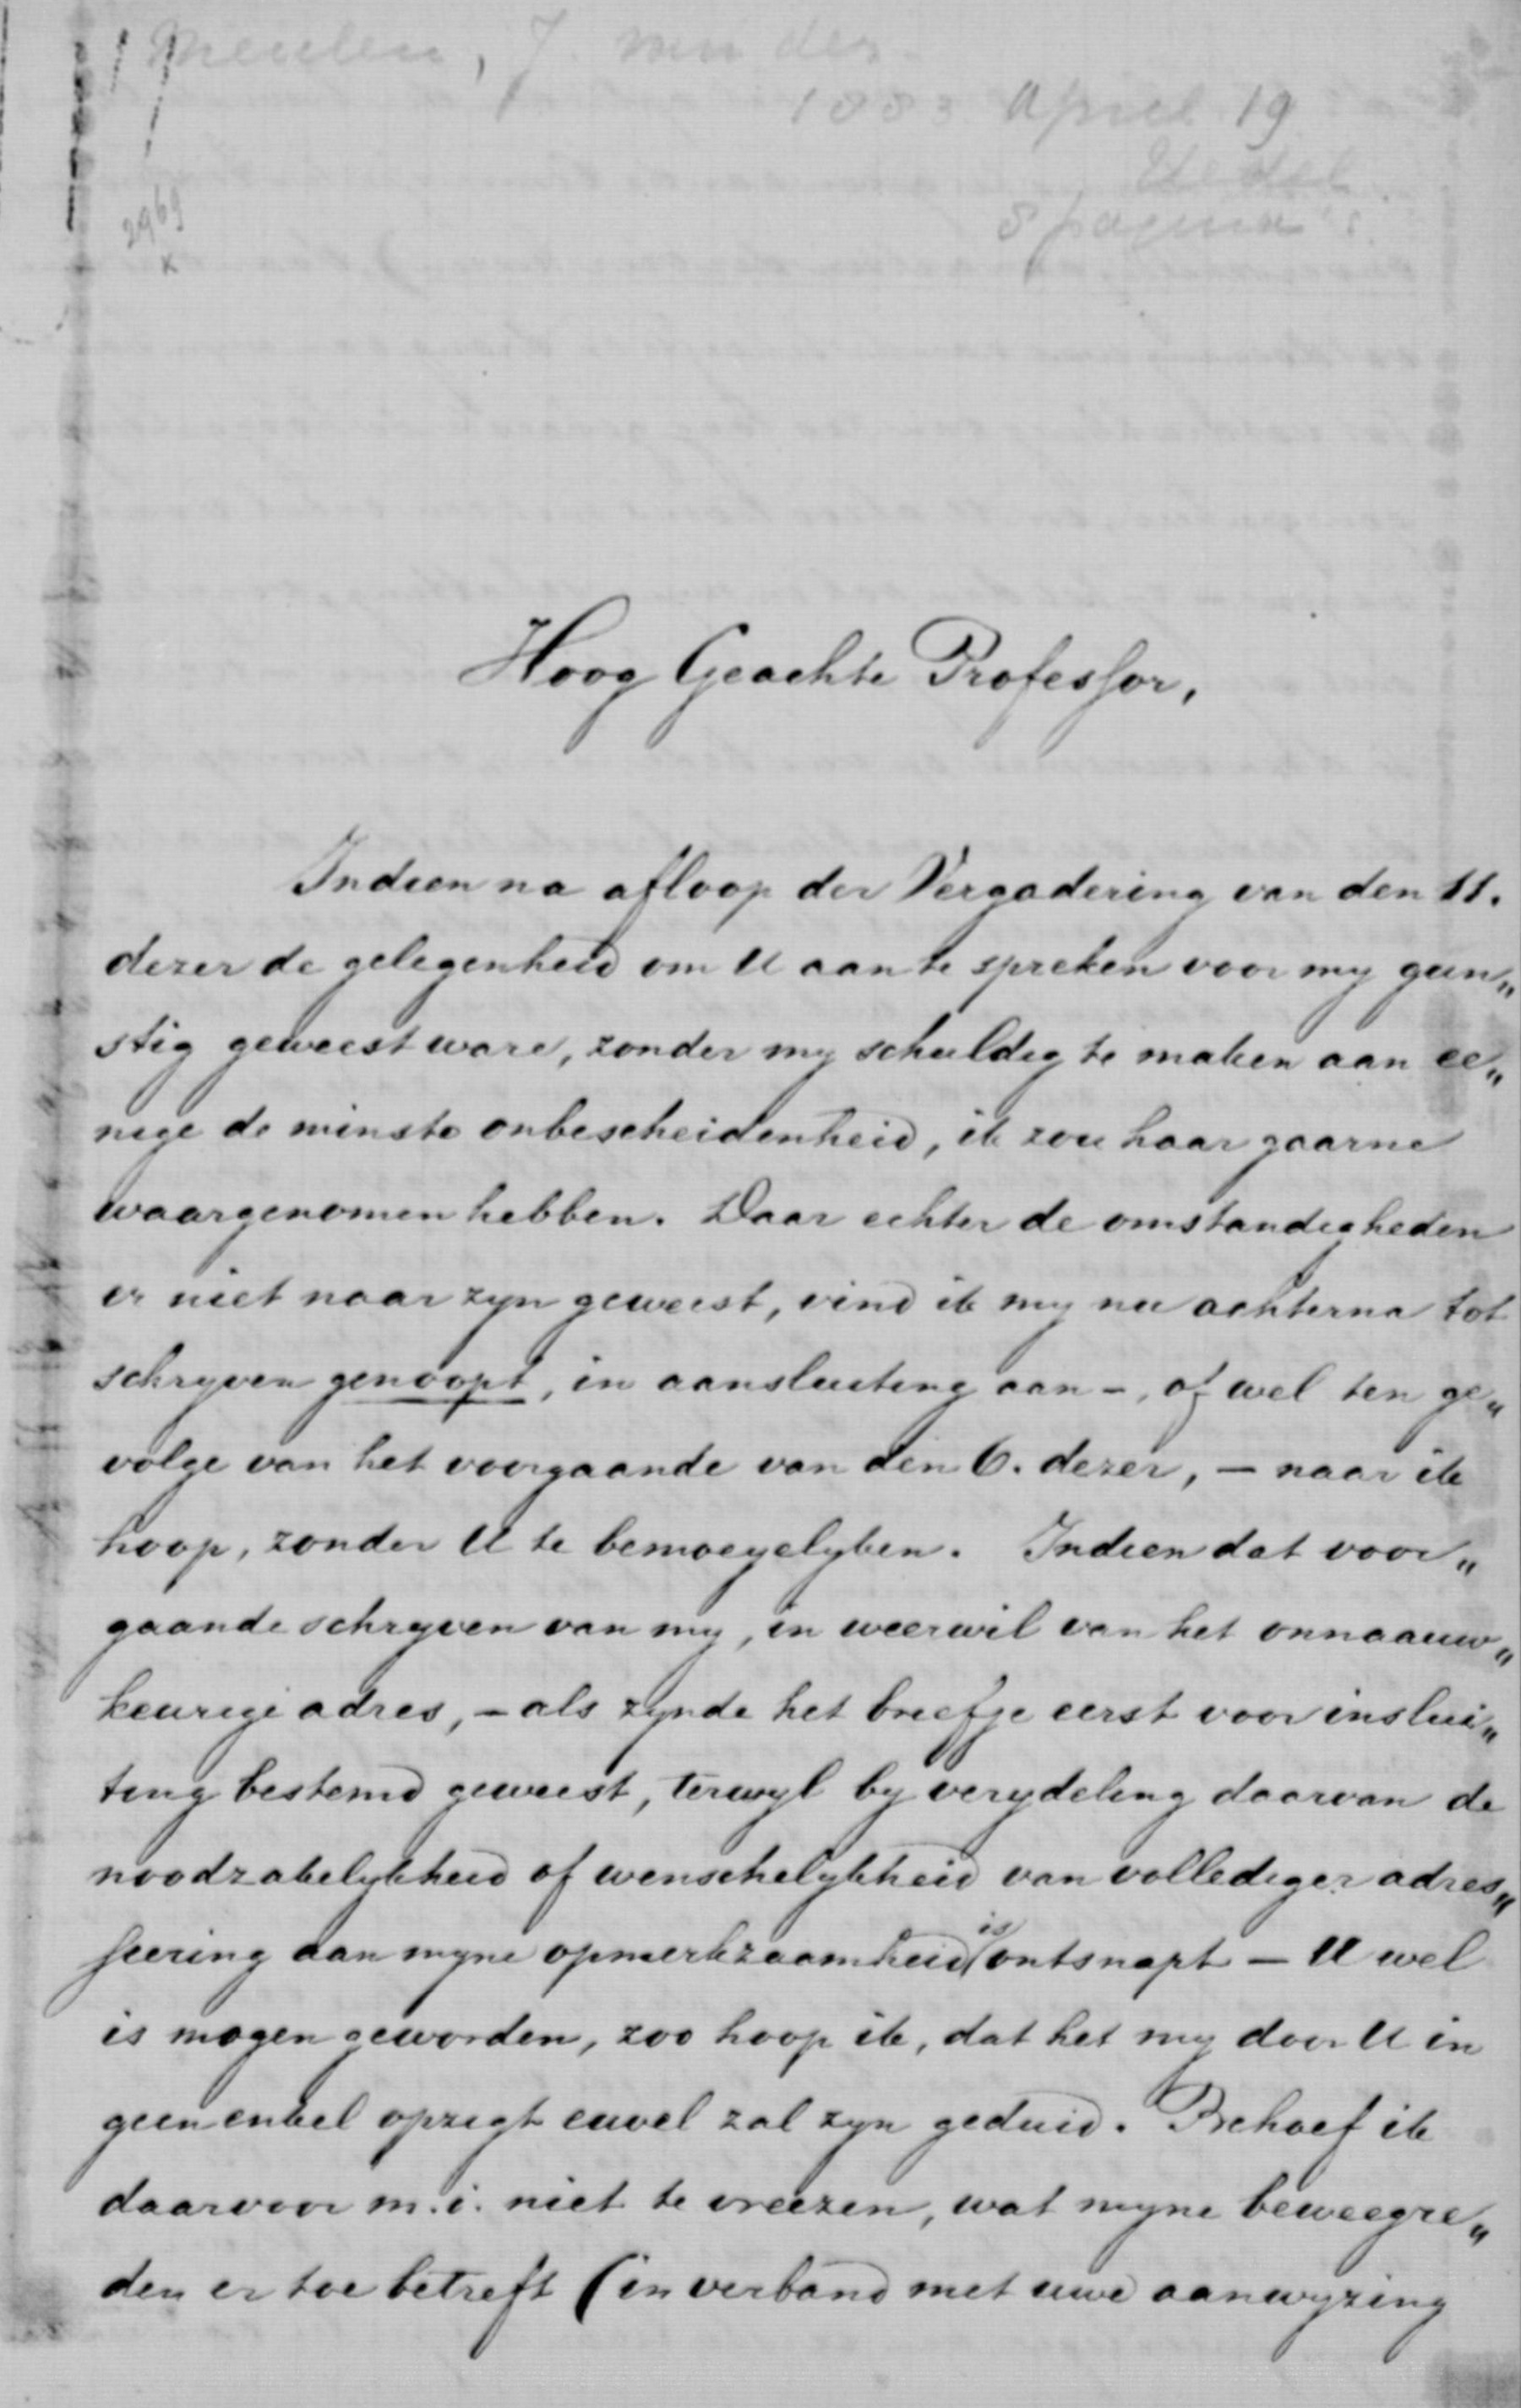 Meulen, J. van der
1883 April 19
Uedel
8 pagina's.
2969
x
Hoog Geachte Professor,
Indien na afloop der Vergadering van den 11.
dezer de gelegenheid om U aan te spreken voor my gun„
stig geweest ware, zonder my schuldig te maken aan ee„
nige de minste onbescheidenheid, ik zou haar gaarne
waargenomen hebben. Daar echter de omstandigheden
er niet naar zyn geweest, vind ik my nu achterna tot
schryven genoopt, in aansluiting aan -, of wel ten ge„
volge van het voorgaande van den 6. dezer, – naar ik
hoop, zonder U te bemoeyelyken. Indien dat voor„
gaande schryven van my, in weerwil van het onnaauw„
keurige adres, – als zynde het briefje eerst voor inslui„
ting bestemd geweest, terwyl by verydeling daarvan de
noodzakelykheid of wenschelykheid van vollediger adres„
seering aan myne opmerkzaamheid is ontsnapt – U wel
is mogen geworden, zoo hoop ik, dat het my door U in
geen enkel opzigt euvel zal zyn geduid. Behoef ik
daarvoor m. i. niet te vreezen, wat myne beweegre„
den er toe betreft (in verband met uwe aanwyzing